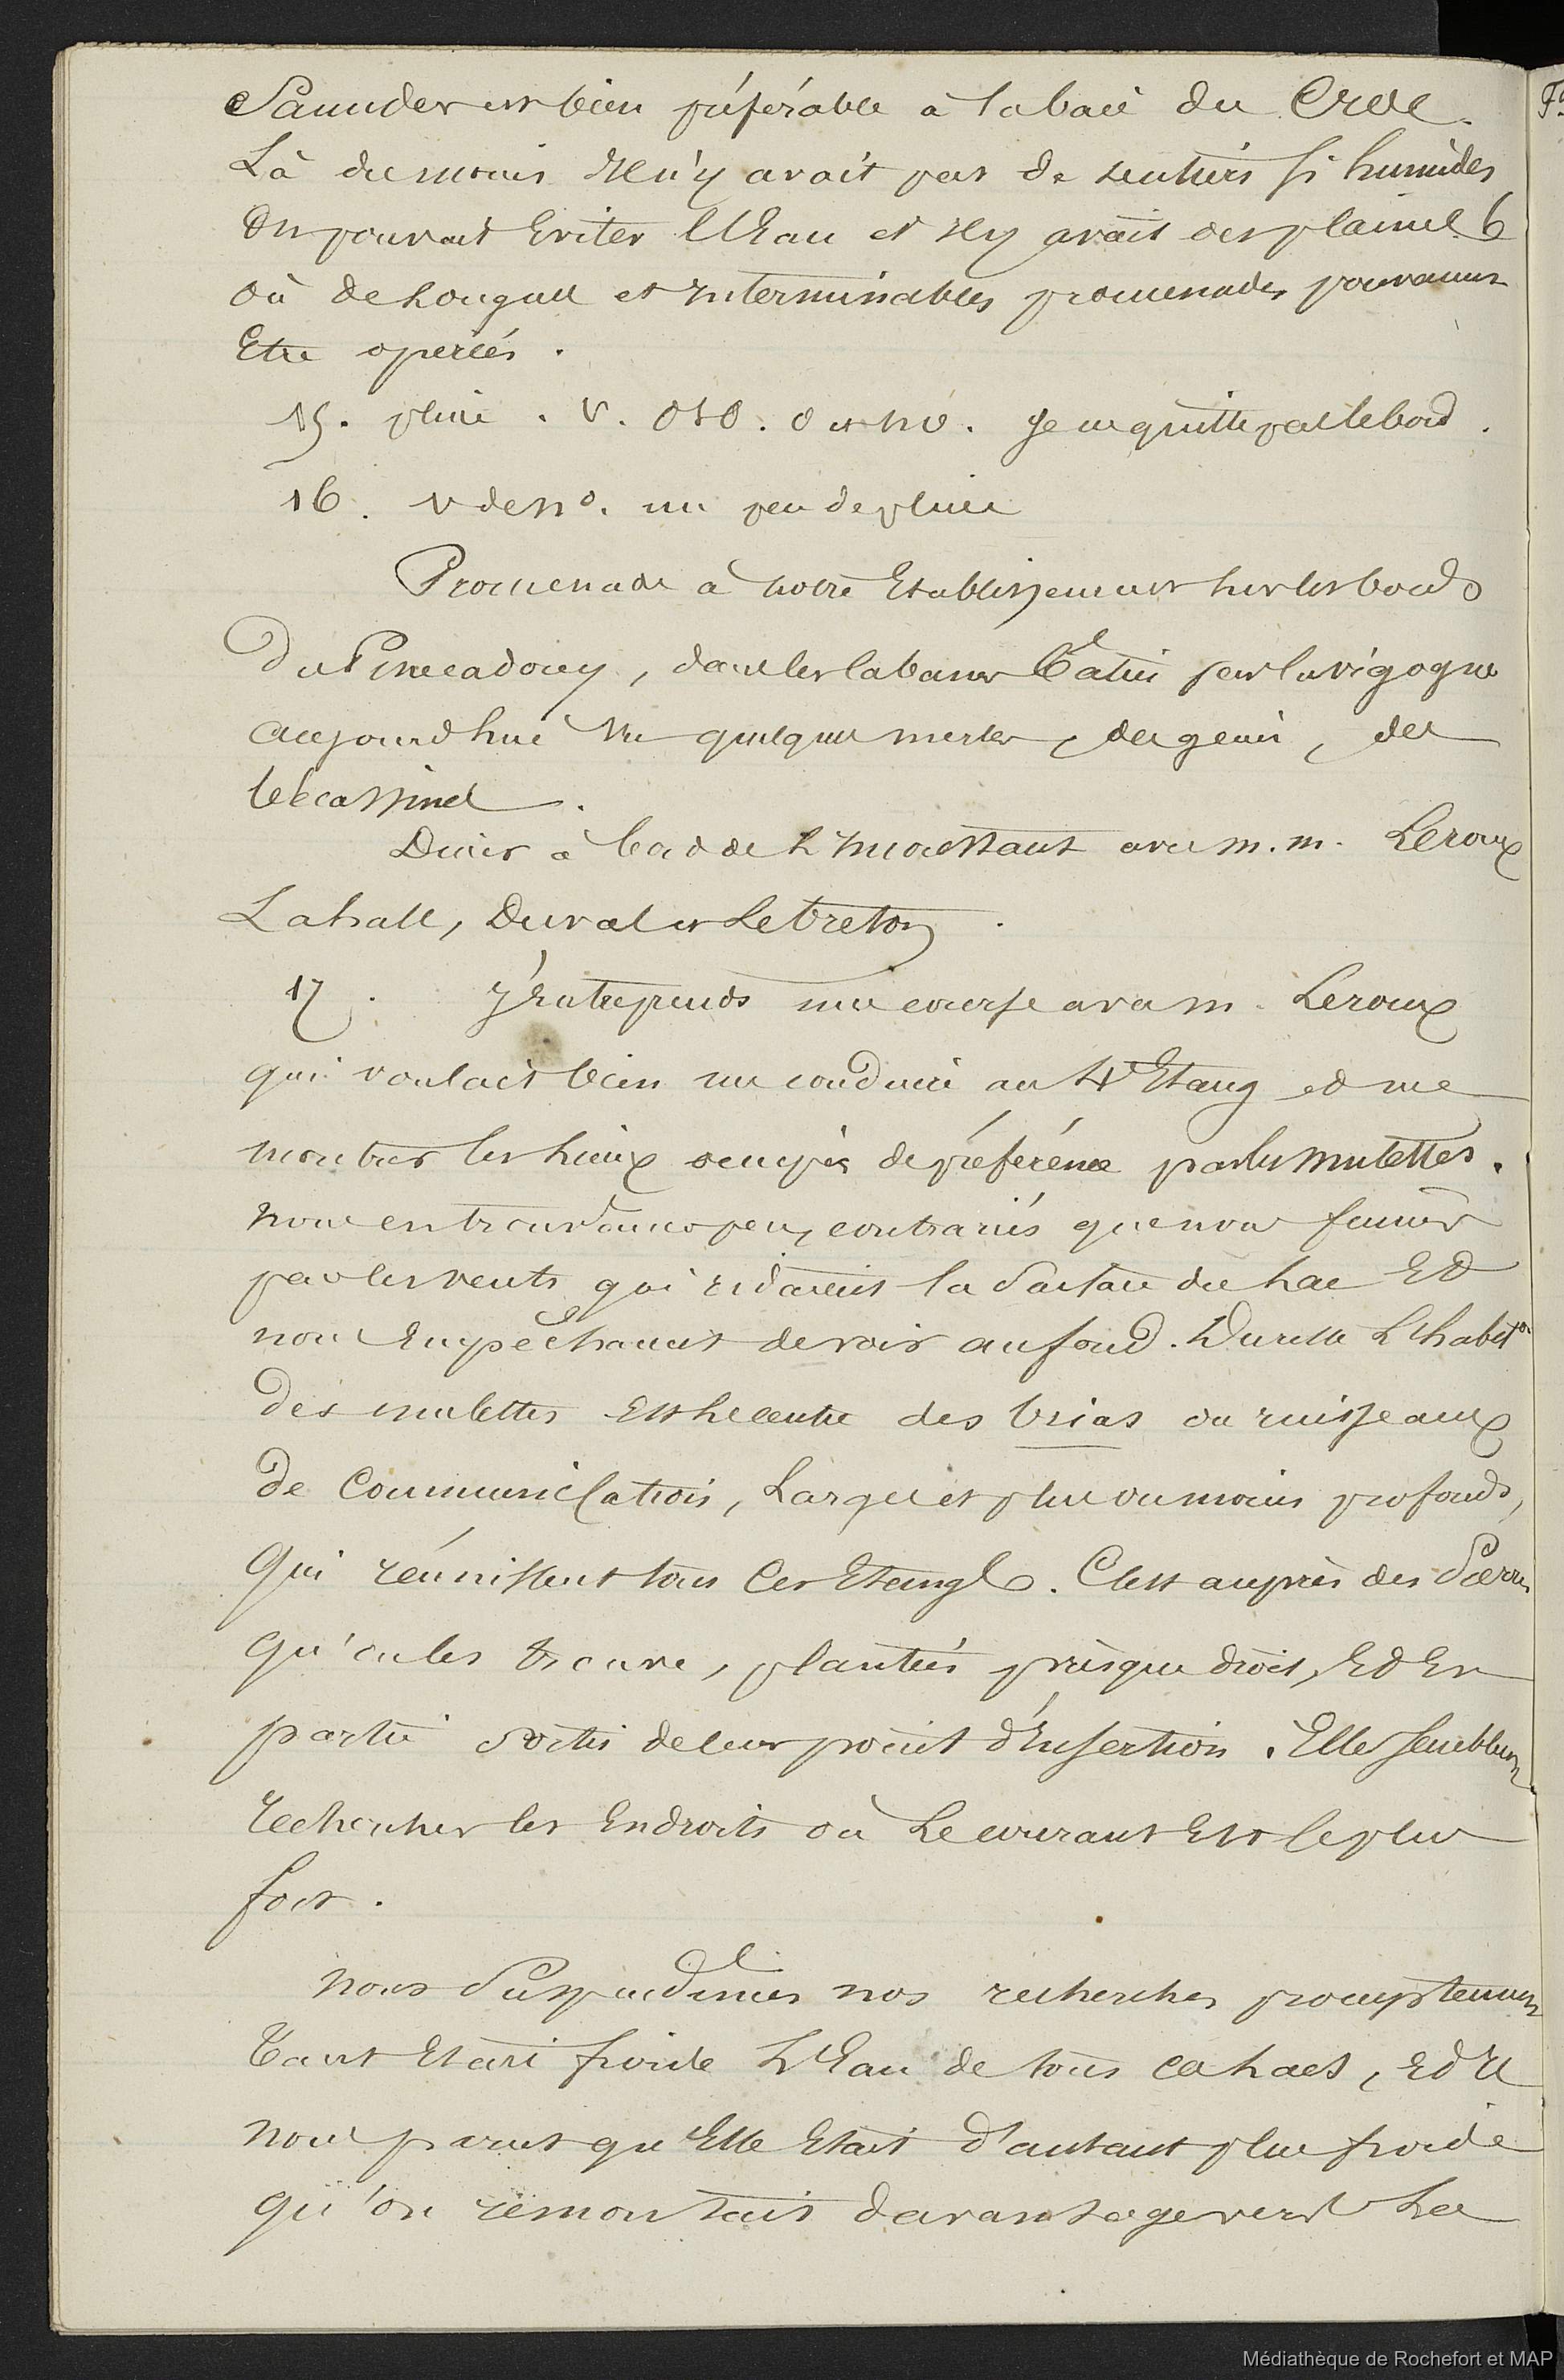 Saunder est bien préférable à la baie du Croc.
Là du moins Il n'y avait pas de sentiers si humides
On pouvait Eviter l'Eau et Il y avait des plaines
où de Longues et Interminables promenades pouvaient
Etre operées.
15. pluie. V. OSO. O et NO. Je ne quitte pas le bord.
16. V de NO. un peu de pluie
Promenade à notre Etablissement sur les bords
Du, dans les cabanes Baties par la vigogne
aujourdhui Vu quelques merles, des geais, des
bécassines.
Diner à bord de L'Inconstant avec M. M. Leroux
Lahalle, Duval et Lebreton.
17. J'Entreprends une course avec M. Leroux
qui voulait bien me conduire au 4e Etang et me
montrer les Lieux occupés de préférence par les mulettes.
nous en trouvames peu, contrariés que nous fumes
par les vents qui ridaient la Surface du Lac Et
nous Empêchaient de voir au fond. Du reste L'habit.on
des mulettes Est Le centre des brias ou ruisseaux
de Communication, Larges et plus ou moins profonds,
Qui réunissent tous ces Etangs. C'est auprès des Pierres
qu'on les trouve, plantées presque droites, Et En
partie sorties de leur point d'Insertion. Elles semblent
rechercher les Endroits où Le courant Est le plus
fort.
Nous Suspendimes nos recherches promptement
Tant Etait froide L'Eau de tous ces Lacs, Et Il
nous parut qu'Elle Etait d'autant plus froide
qu'on remontait davantage vers Les
Médiathèque de Rochefort et MAP